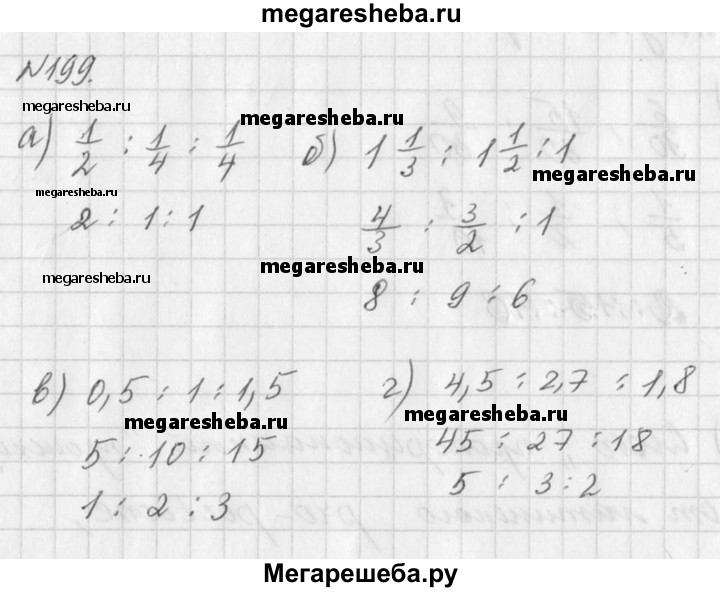 megaresheba.ru
№199.
megaresheba.ru
megaresheba.ru
а) 1/2 : 1/4 : 1/4
2 : 1 : 1
megaresheba.ru
megaresheba.ru
б) 1 1/3 : 1 1/2 : 1
megaresheba.ru
4/3 : 3/2 : 1
megaresheba.ru
8 : 9 : 6
в) 0,5 : 1 : 1,5
megaresheba.ru
5 : 10 : 15
1 : 2 : 3
г) 4,5 : 2,7 : 1,8
megaresheba.ru
45 : 27 : 18
5 : 3 : 2
Мегарешеба.ру